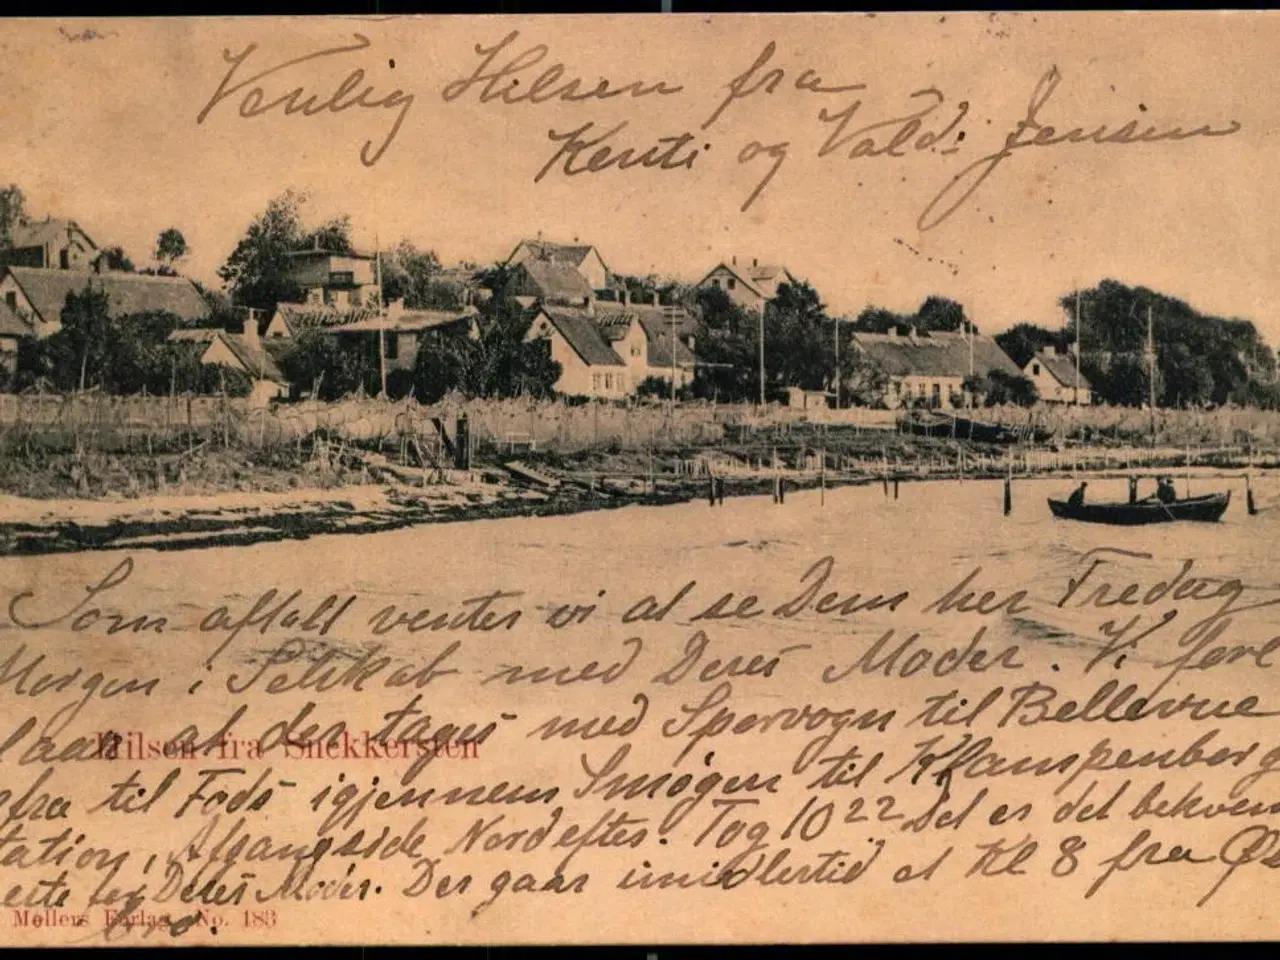 Venlig Hilsen fra
Kenti og Vald: Jensen
Som aftalt venter vi at se Dem her Fredag
Morgen i Selskab med Deres Moder. Vi fore
slaar at der tages med Sporvogn til Bellevue
fra til Fods igjennem Smøgen til Klampenborg
tation, Afgangside Nordefter. Tog 10 22 Det er det bekvem
este for Deres Moder. Der gaar imidlertid et Kl 8 fra Øs
Hilsen fra Snekkersten
Møllers Forlag. No. 183
bro.